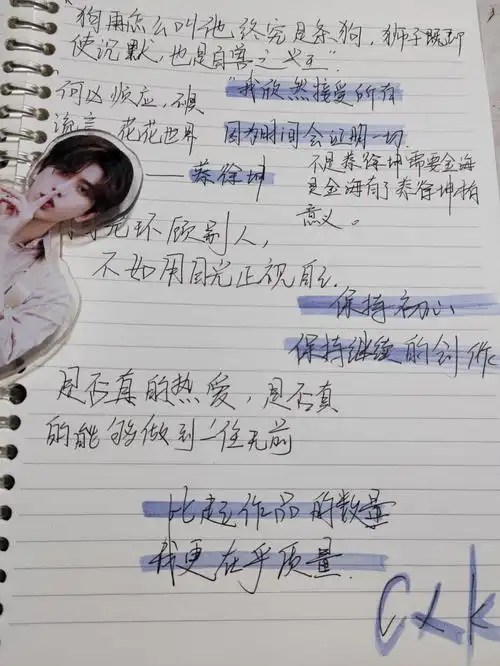 狗再怎么叫他终究是条狗，狮子既即
使沉默，也是百兽之王".
何必烦应，不畏 "我欣然接受所有
流言 花花世界 因为时间会证明一切.
——蔡徐坤 不是蔡徐坤需要金海
是金海有了蔡徐坤才有
意义。
环顾别人，
不如用目光正视自己.
保持初心
保持继续的创作
是否真的热爱，是否真
的能够做到一往无前
比起作品的数量
我更在乎质量.
CXK